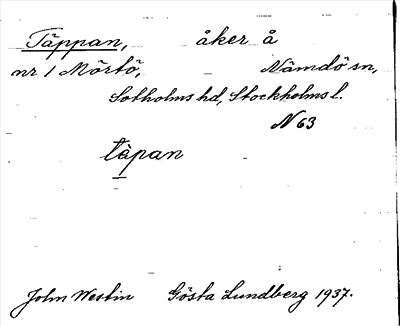 Täppan, åker å
nr 1 Mörtö, Nämdö sn,
Sotholms hd, Stockholms l.
N 63
tàpan
John Westin Gösta Lundberg 1937.